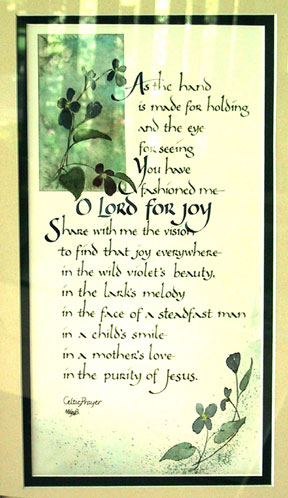 As the hand
is made for holding
and the eye
for seeing
You have
fashioned me
O LORD for joy
Share with me the vision
to find that joy everywhere
in the wild violet's beauty,
in the lark's melody
in the face of a steadfast man
in a child's smile
in a mother's love
in the purity of Jesus.
Celtic Prayer